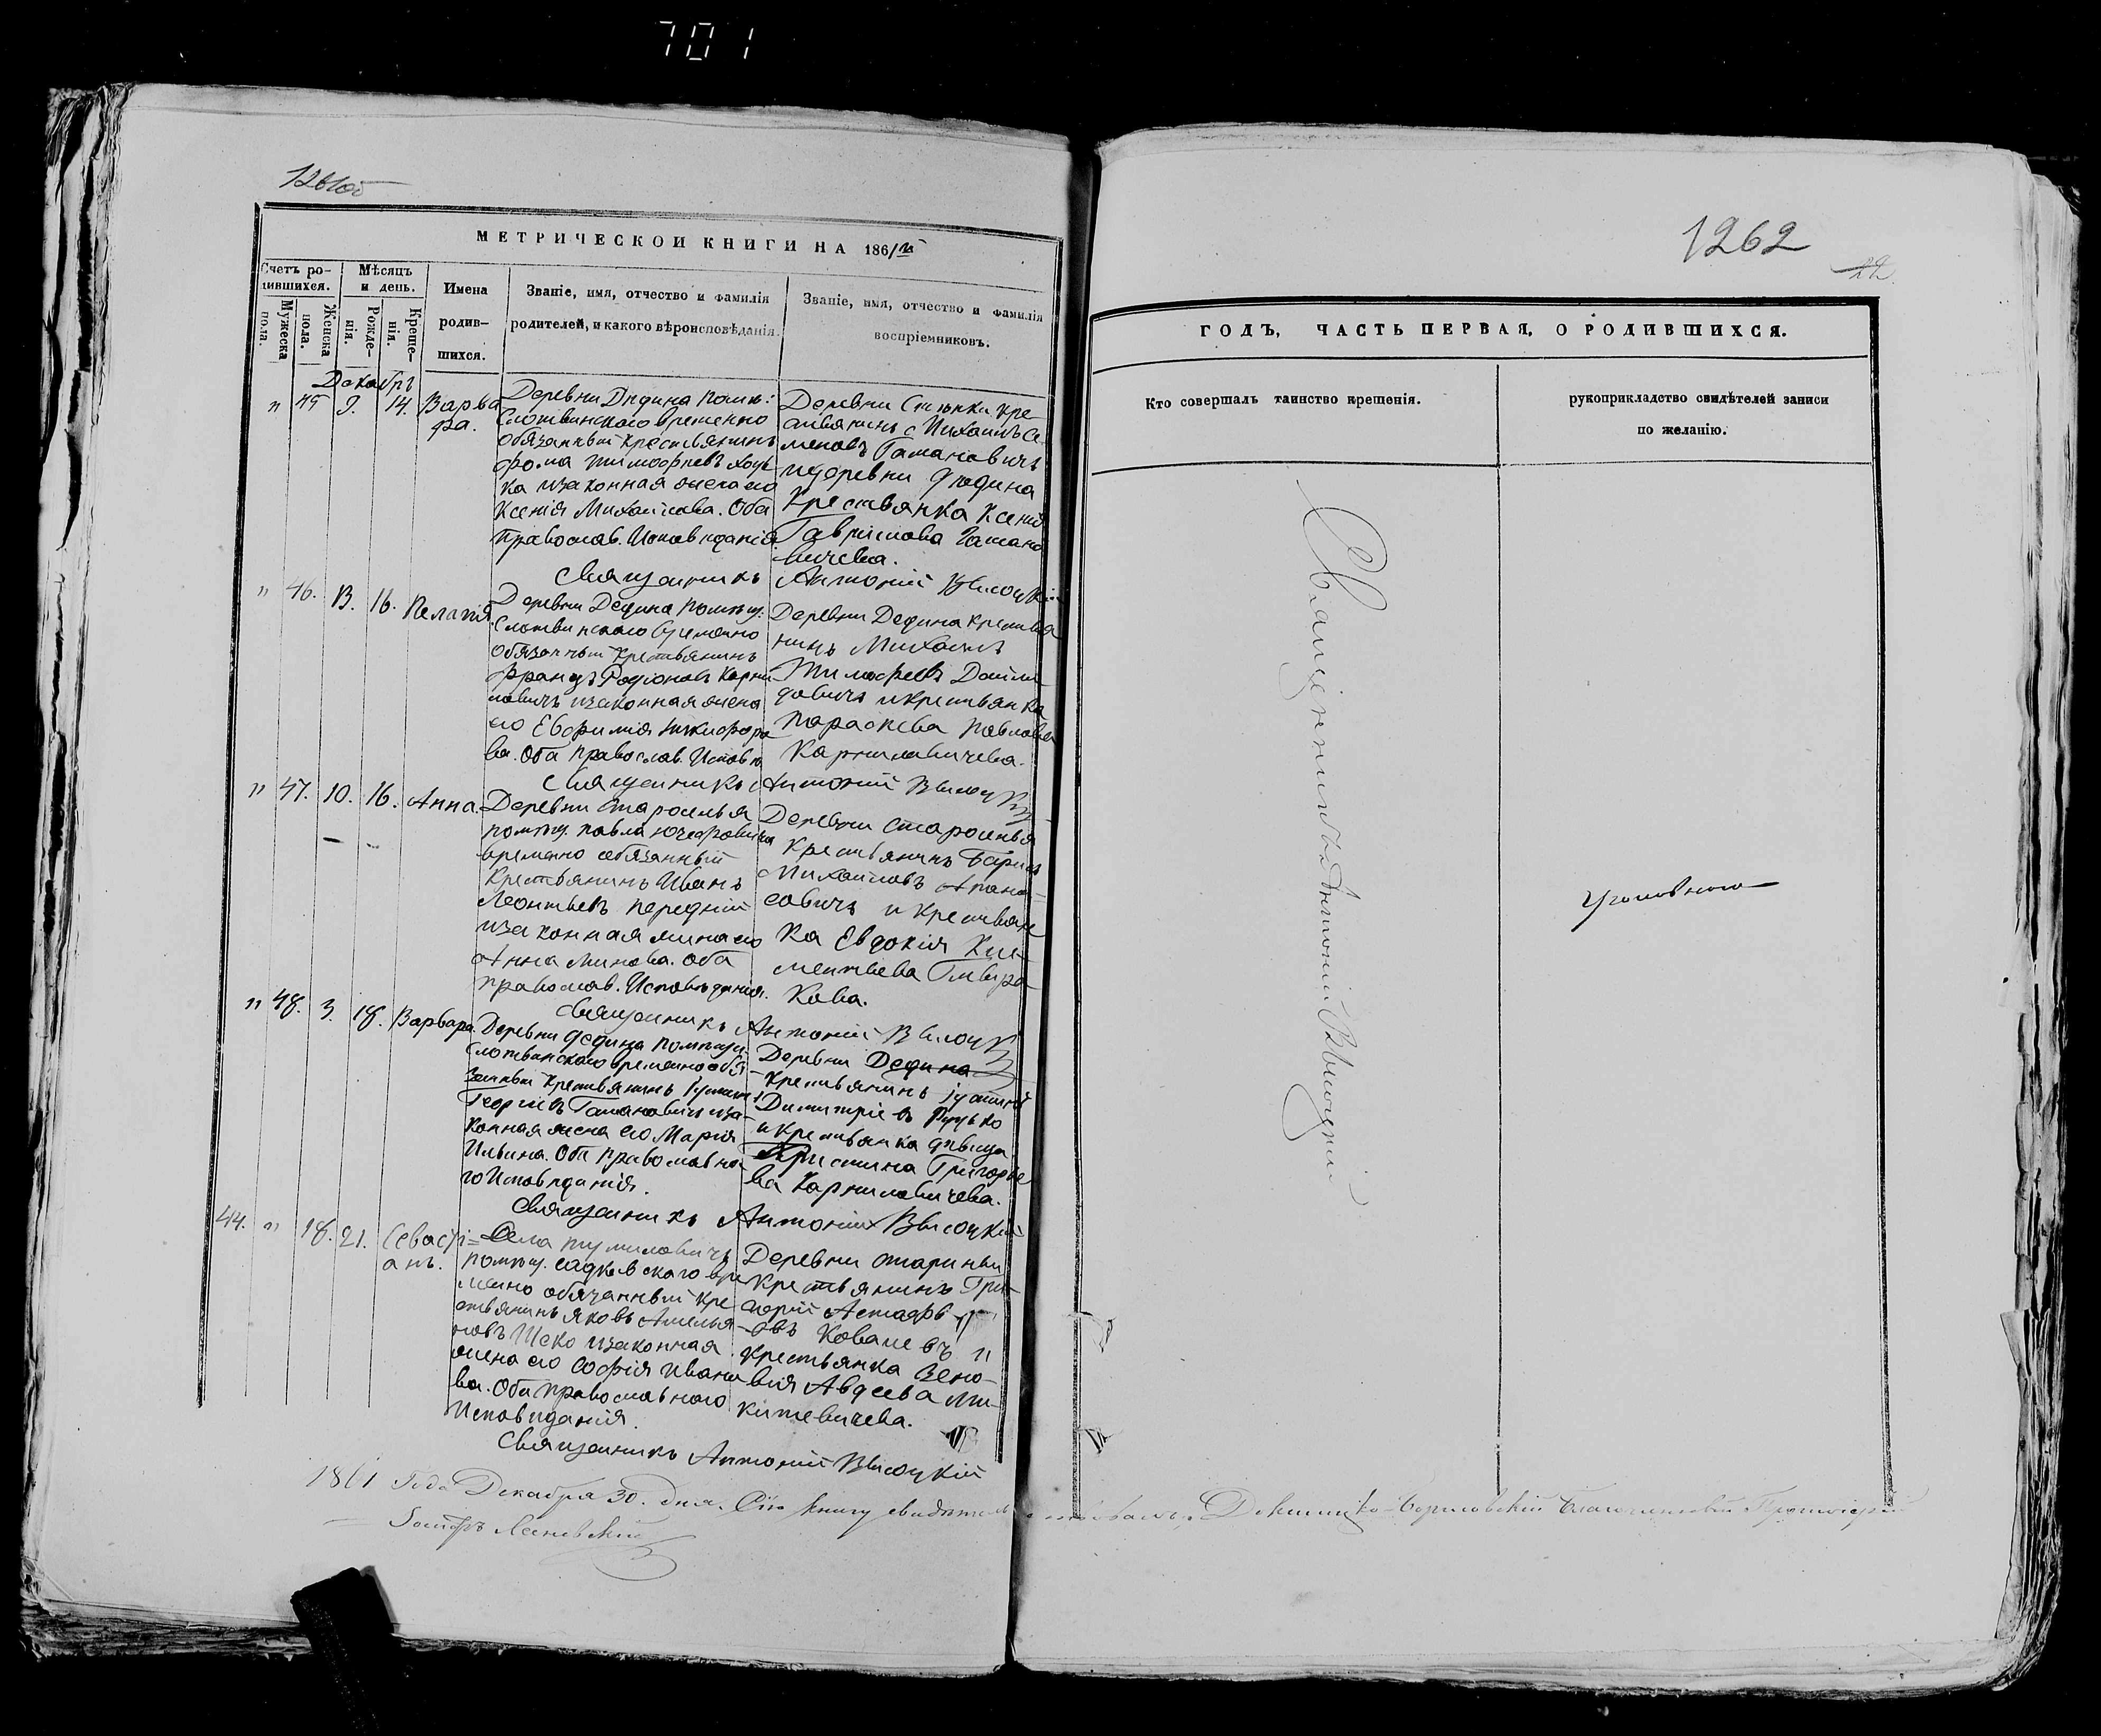 701
1261об
МЕТРИЧЕСКОЙ КНИГИ НА 1861й
Счетъ ро-
дившихся.
Мѣсяцъ
и день.
Имена
родив-
шихся.
Званіе, имя, отчество и фамилія
родителей, и какого вѣроисповѣданія.
Званіе, имя, отчество и фамилія
воспріемниковъ.
Мужеска
пола.
Женска
пола.
Рожде-
нія.
Креще-
нія.
Декабрь
" 45 9. 14. Варва
ра.
Деревни Дидина помѣ:
Слотвинскаго временно
обязанный крестьянинъ
Фома Тимофеевъ
ка и законная жена его
Ксенія Михайлова. Оба
Православ. Исповѣданія.
Деревни кре
стьянинъ Михаилъ Се
меновъ Татановичъ
и деревни Дидина
Крестьянка Ксенія
Гаврилова Татано
вичева.
Священникъ Антоній Высоцкій
" 46. 13. 16. Пелагія
Деревни Дедина помѣщ.
Слотвинскаго временно
обязанный крестьянинъ
Францъ Родіоновъ Карни
ловичъ и законная жена
его Евфимія Никифоро
ва. Оба Православ. Исповѣ
Деревни Дедина крестья
нинъ Михаилъ
Тимофеевъ
и крестьянка
Параскева Павлова
Карниловичева.
Священникъ Антоній Высоцкій
" 47. 10. 16. Анна.
Деревни Староселья
помѣщ. Павла
временно обязанный
Крестьянинъ Иванъ
Леонтьевъ Передній
и законная жена его
Анна Минова. Оба
православ. Исповѣданія.
Деревни Староселья
Крестьянинъ Барисъ
Михайловъ Апана-
совичъ и крестьян
ка Евдокія Кли-
ментьева
кова.
Священникъ Антоній Высоцкій
" 48. 3. 18. Варвара.
Деревни Дедина помѣщи.
Слотвинскаго временно обя
занный Крестьянинъ
Георгіевъ Татановичъ и за-
конная жена его Марія
Ильина. Оба православна
го Исповѣданія.
Деревни Дедина
Крестьянинъ Іустинъ
Димитріевъ
и крестьянка дѣвица
Христина Григорье
ва Карниловичева.
Священникъ Антоній Высоцкій
44. " 18. 21. Севасті-
анъ.
Села Тумиловичъ
помѣщ. Садковскаго вре
менно обязанный кре
стьянинъ Яковъ Амелья
новъ и законная
жена его Софія Ивано
ва. Оба православнаго
Исповѣданія.
Деревни
крестьянинъ Гри-
горій Астафь
евъ Ковалевъ и
крестьянка Зено-
вія Авдеева Ми-
китевичева.
Священникъ Антоній Высоцкій
1861 Года Декабря 30. дня. Сію книгу свидѣтельствовалъ, Докшицко-Борисовскій Благочинный Протоіерей
1262
22
ГОДЪ, ЧАСТЬ ПЕРВАЯ, О РОДИВШИХСЯ.
Кто совершалъ таинство крещенія.
рукоприкладство свидѣтелей записи
по желанію.
Священникъ Антоній Высоцкій